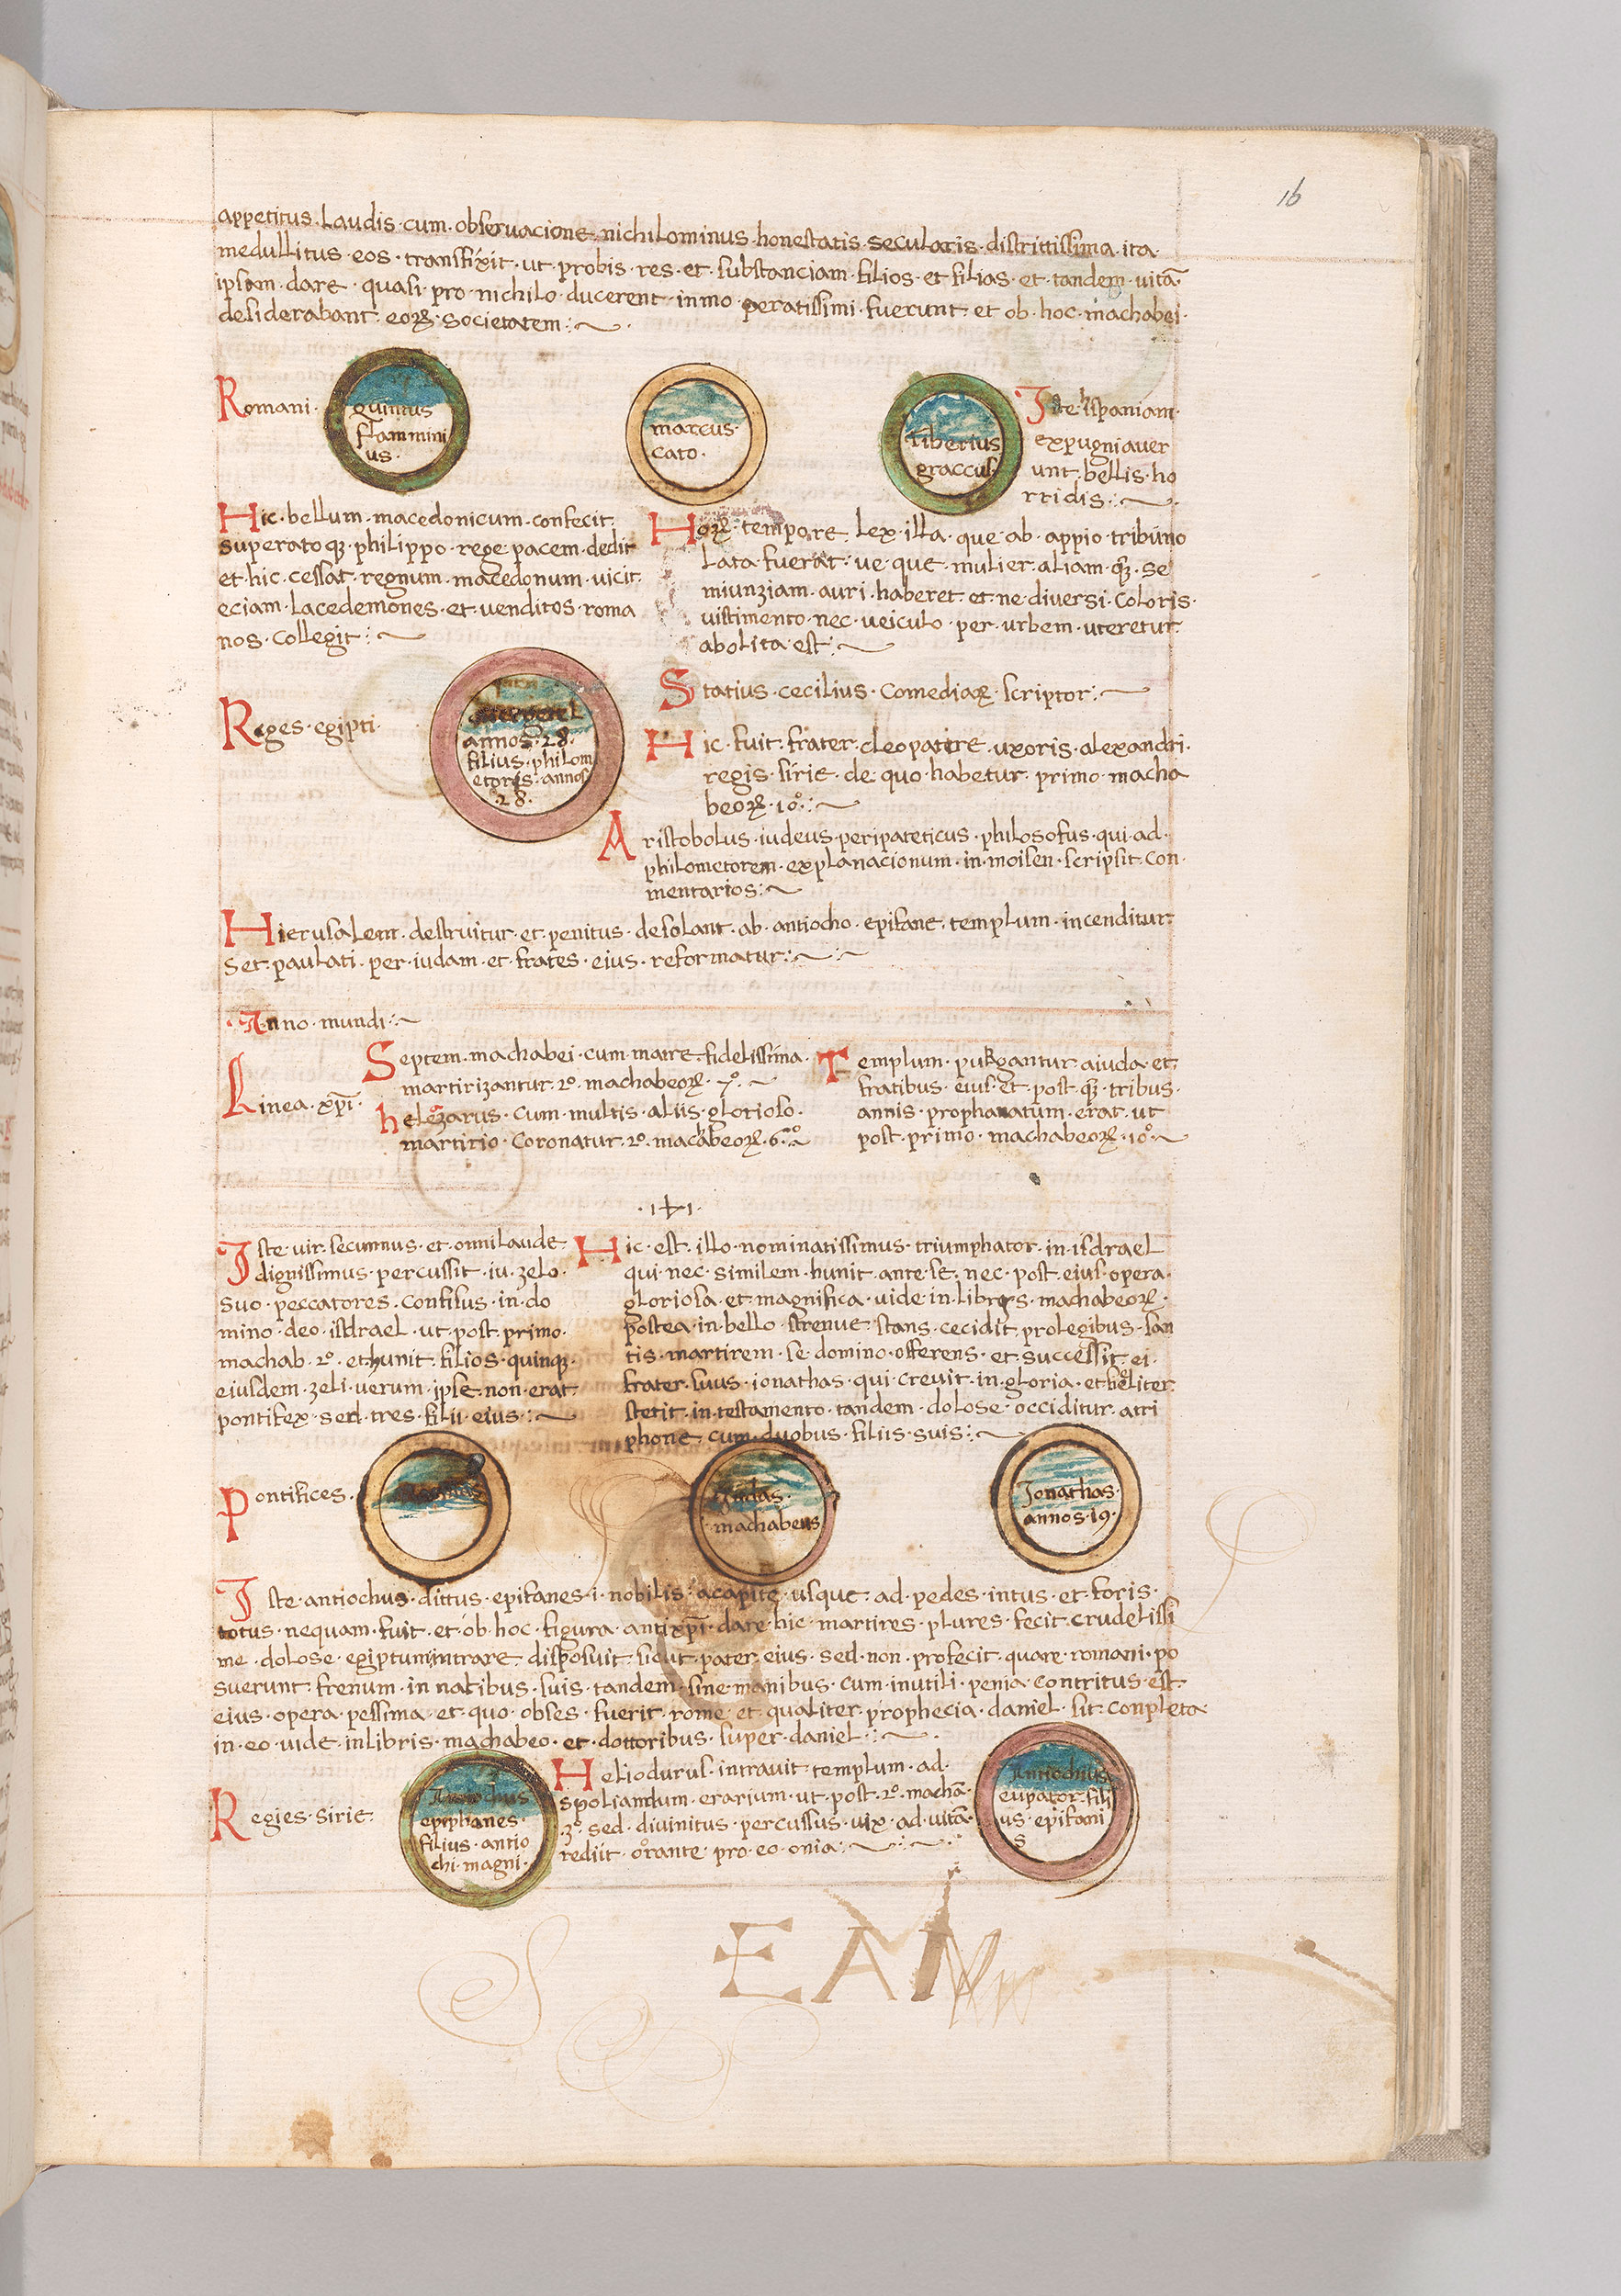 16
appetitus · laudis · cum · obseruacione · nichilominus · honestatis · secularis · districtissima · ita ·
medullitus · eos · transfixit · ut · probis · res · et · substanciam · filios · et · filias · et · tandem · uitā ·
ipsam · dare · quasi · pro · nichilo · ducerent · inmo · peratissimi · fuerunt · et · ob · hoc · machabei ·
desiderabant · eoꝝ · societatem :~ ·
Romani ·
quintus
flammini
us ·
marcus ·
cato ·
tiberius
graccus
Iste hispaniam ·
expugniauer
unt · bellis · ho
rridis :~
Hic · bellum · macedonicum · confecit ·
superatoqꝫ · philippo · rege · pacem · dedit
et · hic · cessat · regnum · macedonum · uicit
eciam · lacedemones · et · uenditos · roma
nos · collegit :~
Hoꝝ · tempore lex · illa · que · ab · appio · tribuno
lata · fuerat · ue · que · mulier · aliam · qꝫ · se
miunziam · auri · haberet · et · ne · diuersi · coloris ·
uistimento · nec · ueiculo · per · urbem · uteretur
abolita · est :~
Statius · cecilius · comediaꝝ · scriptor :~
Reges · egipti ·
annos · 28 ·
filius · philom
etoris · annos
· 28 ·
Hic · fuit · frater · cleopatere · uxoris · alexandri ·
regis · sirie · de · quo · habetur · primo · macha
beoꝝ · 10° :~
Aristobolus · iudeus · peripateticus · philosofus · qui · ad ·
philometorem · explanacionum · in · moisen · scripsit · con ·
mentarios :~
Hierusalem · destruitur · et · penitus · desolant · ab · antiocho · epifane · templum · incenditur
set · paulati · per · iudam · et · frates · eius · reformatur :~ :~
· Anno · mundi :~
Linea · xp̄i ·
Septem · machabei · cum · matre · fidelissima ·
martirizantur · 2° · machabeoꝝ · 7° · ~
helezarus · cum · multis · aliis · glorioso ·
martirio · coronatur · 2° · machabeoꝝ · 6 · °
Templum · purgantur · a iuda · et
fratibus · eius · et · post · qꝫ · tribus ·
annis · prophanatum · erat · ut
post · primo · machabeoꝝ · 10° ~
Iste · uir · secumnus · et · omni laude
dignissimus · percussit · iu · zelo ·
suo · peccatores · confisus · in · do
mino · deo · isdrael · ut · post · primo ·
machab · 2° · et hunit · filios · quinqꝫ ·
eiusdem · zeli · uerum · ipse · non · erat
pontifex · sed · tres · filii · eius :~
Hic · est · illo · nominatissimus · triumphator · in · isdrael
qui · nec · similem · hunit · ante · se · nec · post · eius · opera ·
gloriosa · et · magnifica · uide · in · libros · machabeoꝝ ·
postea · in · bello · strenue · stans · cecidit · pro legibus · san
tis · martirem · se · domino · offerens · et · successit · ei ·
frater · suus · ionathas · qui · creuit · in · gloria · et fideliter
stetit · in · testamento · tandem · dolose · occiditur · a tri
phone · cum · duobus · filiis · suis :~
Pontifices ·
Iudas ·
· machabeus
Ionathas ·
annos · 19 ·
Iste · antiochus · dittus · epifanes · i · nobilis · a capite · usque · ad · pedes · intus · et · foris ·
totus · nequam · fuit · et · ob · hoc · figura · antixp̄i · dare · hic · martires · plures · fecit · crudelissi
me · dolose · egiptum intrare · disposuit · sicut · pater · eius · sed · non · profecit · quare · romani · po
suerunt · frenum · in naribus · suis · tandem · sine · manibus · cum · inutili · penia · contritus · est
eius · opera · pessima · et · quo · obses · fuerit · rome · et · qualiter · prophecia · daniel · sit · conpleta
in · eo · uide · in libris · machabeo · et · dottoribus · super · daniel :~
Regies · sirie
Antiochus
epiphanes ·
filius · antio
chi · magni ·
Heliodurus · intrauit · templum · ad ·
spoliandum · erarium · ut · post · 2° · machā ·
· 3° · sed · diuinitus · percussus · uix · ad · uitā ·
rediit · orante · pro · eo · onia :~ :~
Antiochus
eupator · fili
us · epifani
s
EAM